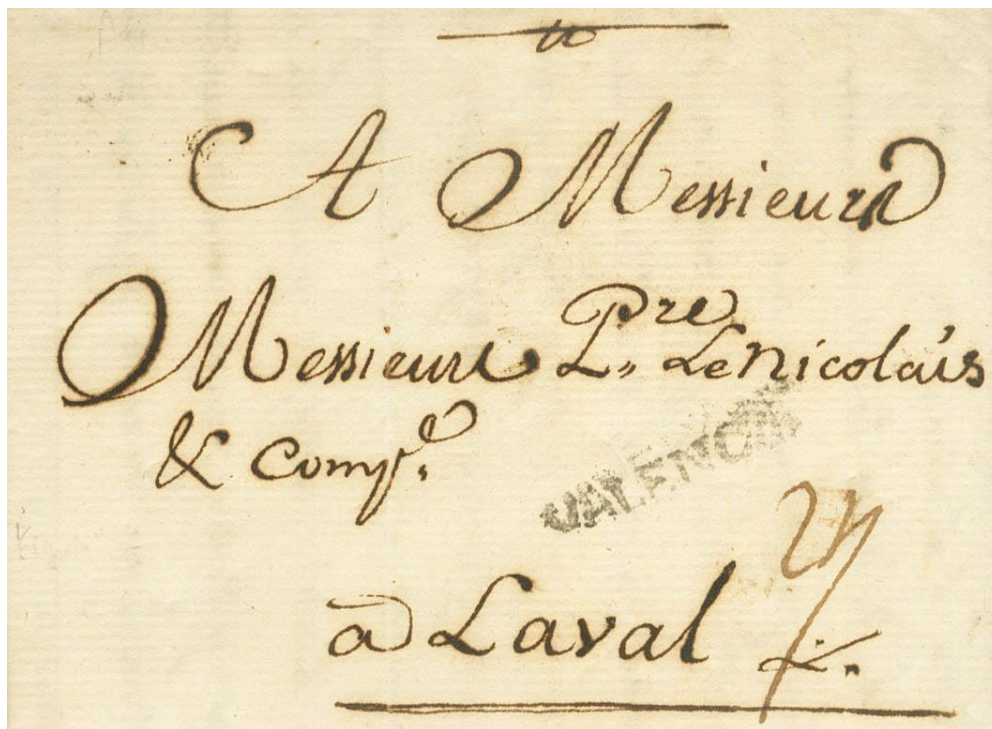 A Messieurs
Messieurs Pre L. Lenicolais
& Compe.
VALENC
à Laval